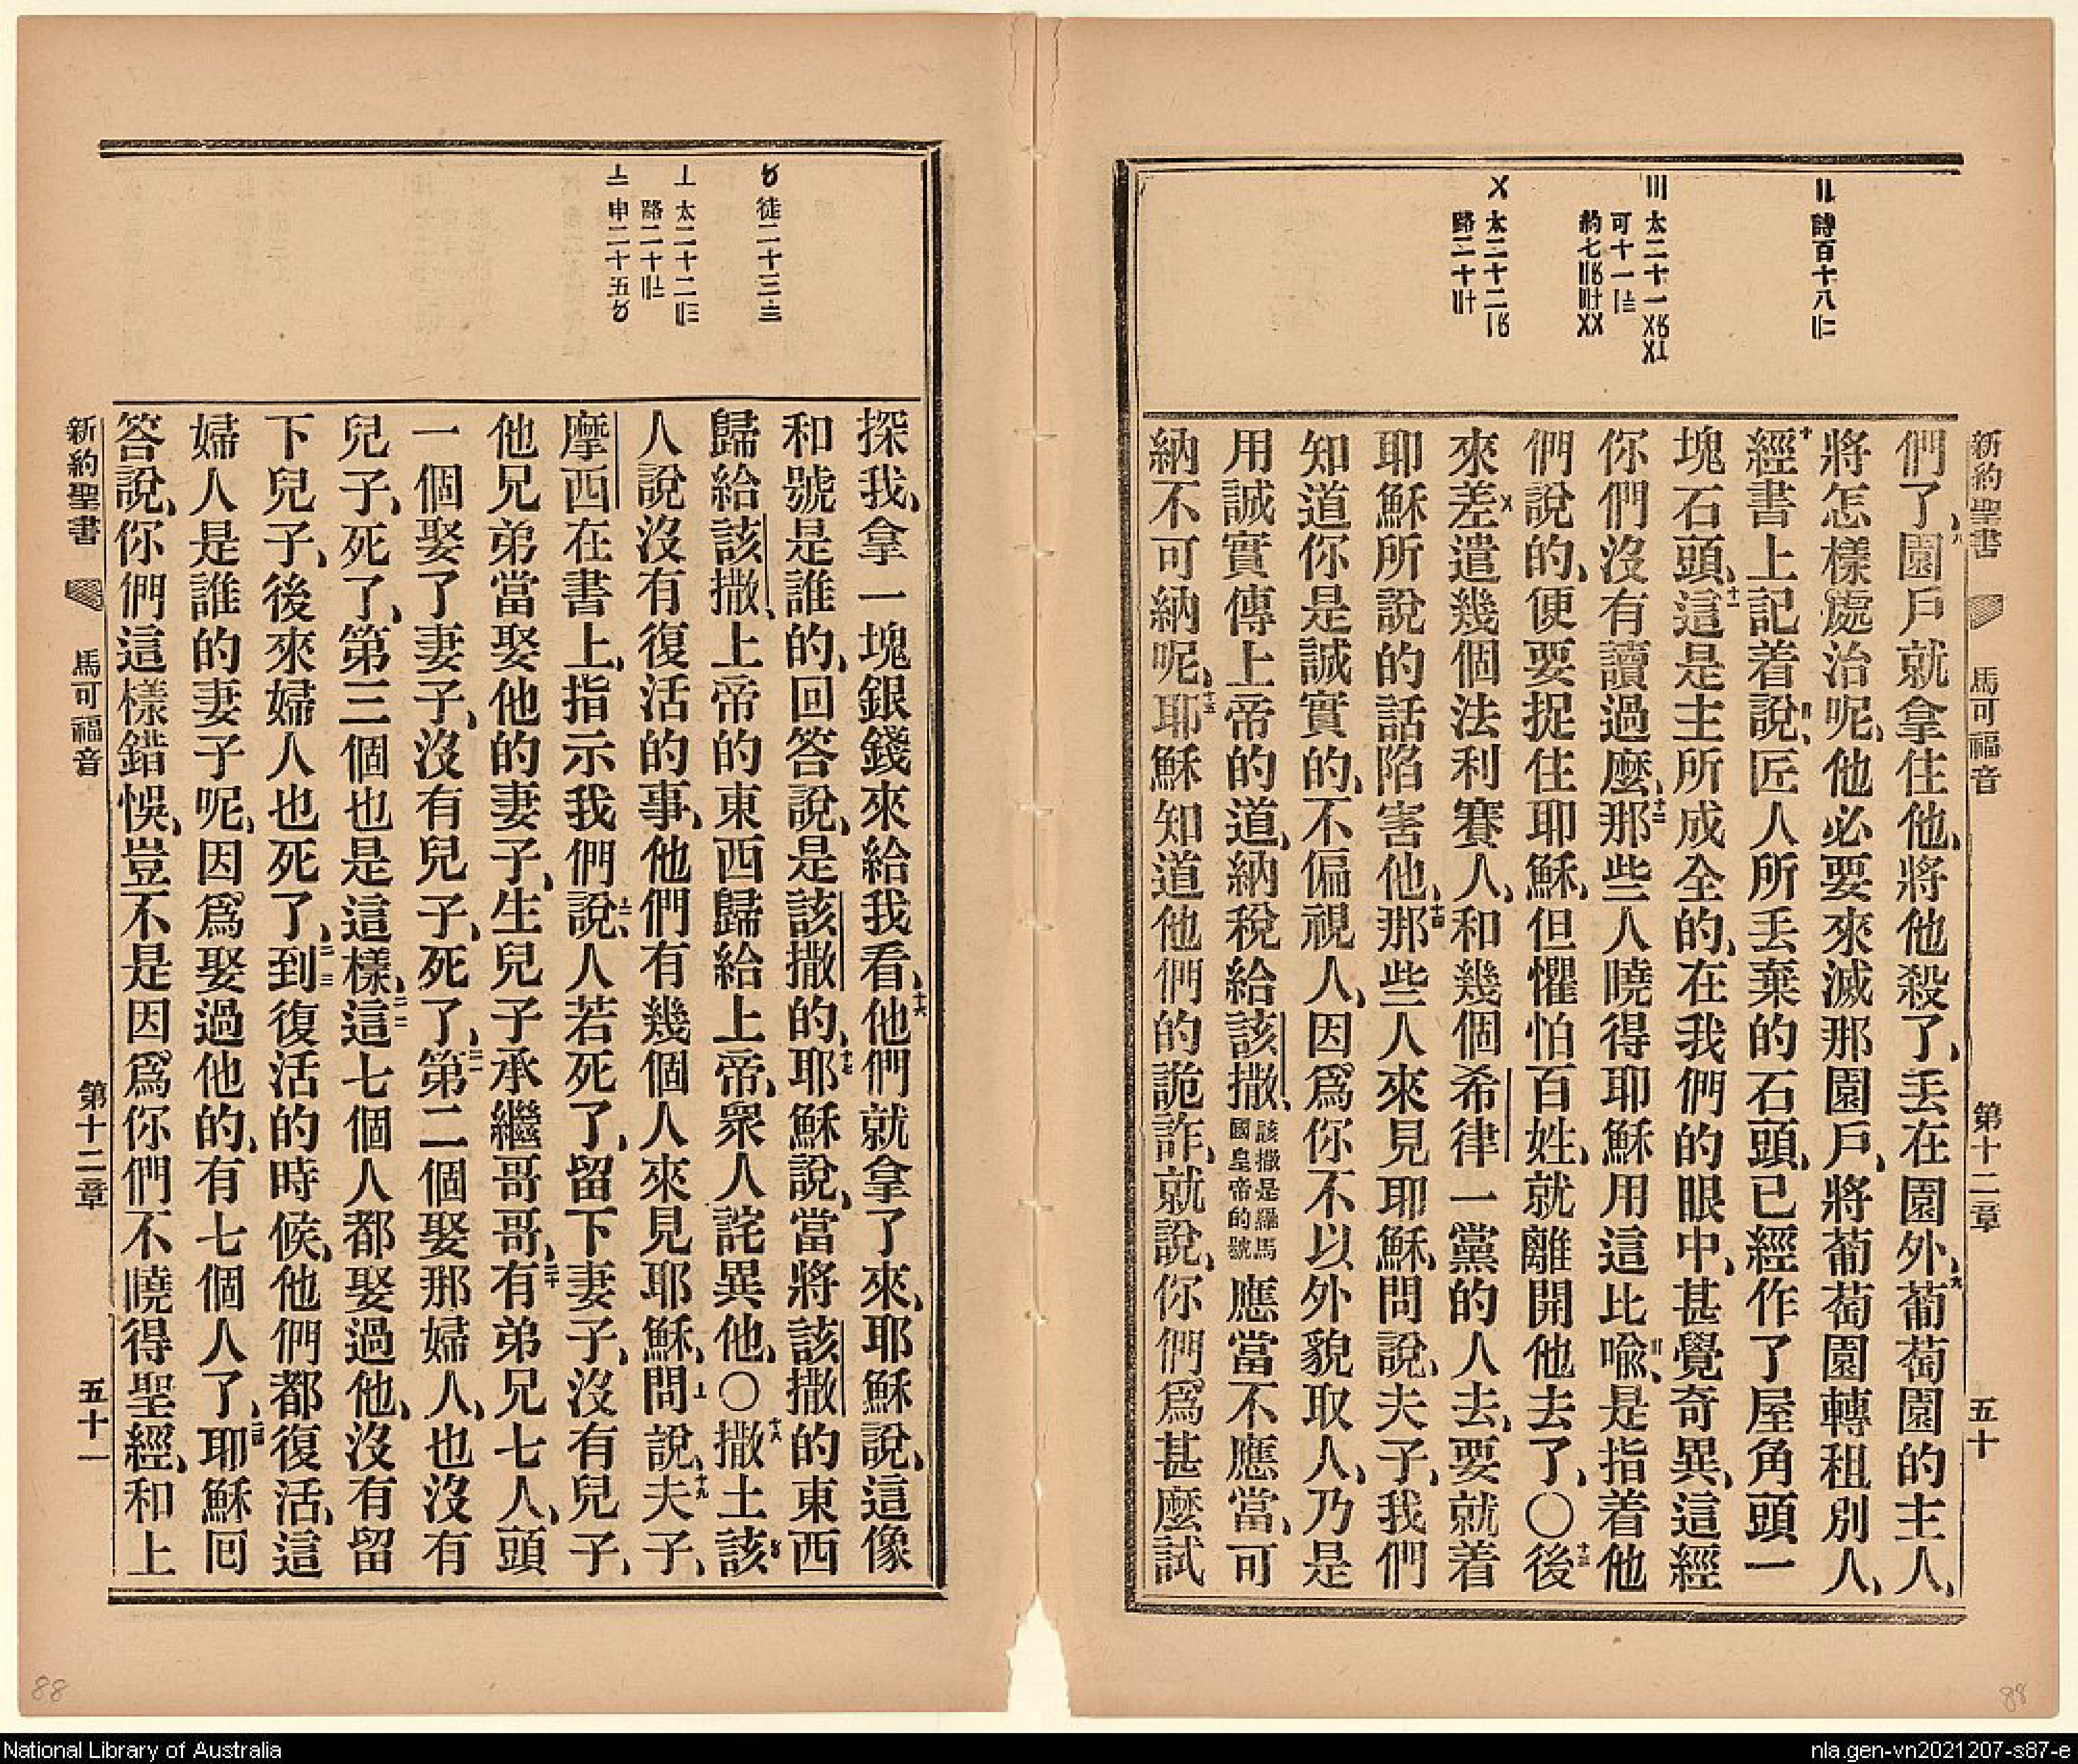 新約聖書 馬可福音 第十二章 五十
〢 詩百十八〢二
〣 太二十一
可十一
約七
〤 太二十二
路二十
們了、八園戶就拿住他、將他殺了、丟在園外、九葡萄園的主人、
將怎樣處治呢、他必要來滅那園戶、將葡萄園轉租別人、
十經書上記着說、〢匠人所丟棄的石頭、已經作了屋角頭一
塊石頭、十一這是主所成全的、在我們的眼中、甚覺奇異、這經
你們沒有讀過麼、十二那些人曉得耶穌用這比喩、〣是指着他
們說的、便要捉住耶穌、但懼怕百姓、就離開他去了、〇十三後
來〤差遣幾個法利賽人、和幾個希律一黨的人去、要就着
耶穌所說的話陷害他、十四那些人來見耶穌、問說、夫子、我們
知道你是誠實的、不偏視人、因爲你不以外貌取人、乃是
用誠實傳上帝的道、納稅給該撒、該撒是羅馬國皇帝的號應當不應當、可
納不可納呢、十五耶穌知道他們的詭詐、就說、你們爲甚麼試
〥 徒二十三
〦 太二十二
路二十
〧 申二十五〥
探我、拿一塊銀錢來給我看、十六他們就拿了來、耶穌說、這像
和號是誰的、回答說、是該撒的、十七耶穌說、當將該撒的東西
歸給該撒、上帝的東西歸給上帝、衆人詫異他、〇十八撒土該〥
人說沒有復活的事、他們有幾個人來見耶穌、問〦說、十九夫子、
摩西在書上、指示我們說、〧人若死了、留下妻子、沒有兒子、
他兄弟當娶他的妻子、生兒子承繼哥哥、二十有弟兄七人、頭
一個娶了妻子、沒有兒子、死了、二一第二個娶那婦人、也沒有
兒子、死了、第三個也是這樣、二二這七個人都娶過他、沒有留
下兒子、後來婦人也死了、二三到復活的時候、他們都復活、這
婦人是誰的妻子呢、因爲娶過他的、有七個人了、二四耶穌回
答說、你們這樣錯悞、豈不是因爲你們不曉得聖經、和上
新約聖書 馬可福音 第十二章 五十一
88
88
National Library of Australia
nla.gen-vn2021207-s87-e